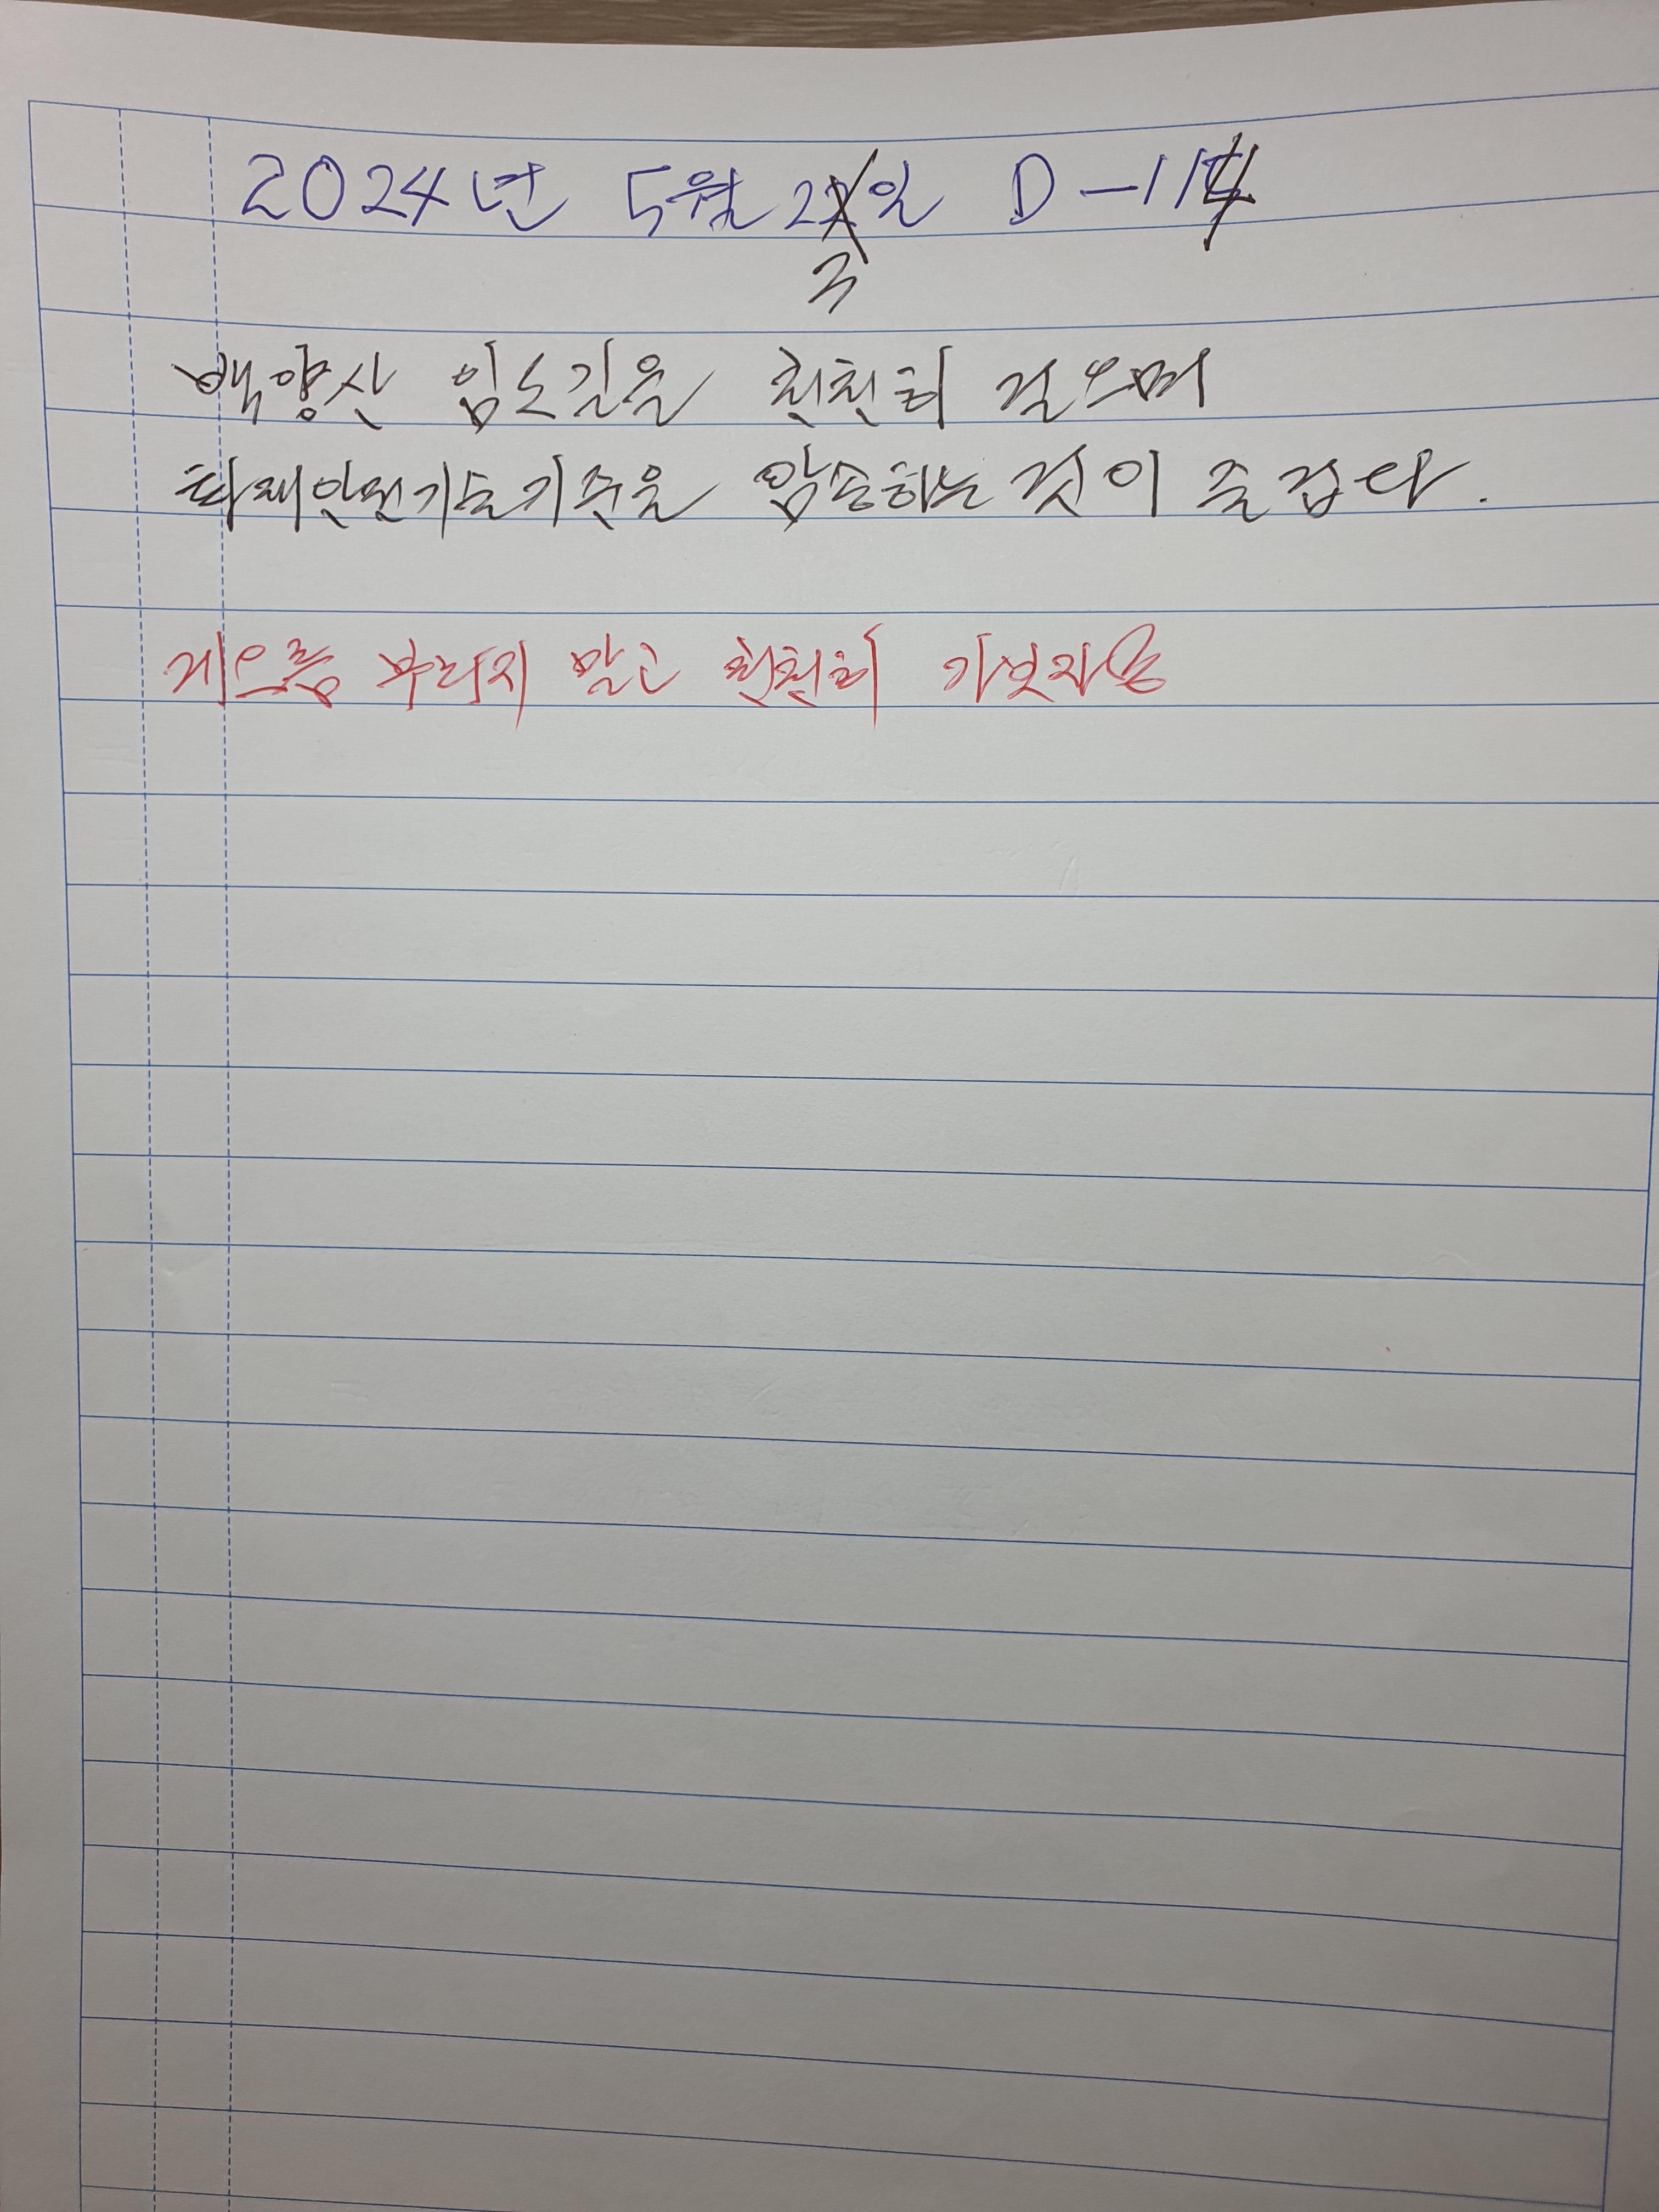 2024년 5월 22일 D-114
3
백양산 임도길을 천천히 걸으며
화재안전기술기준을 암송하는 것이 즐겁다.
게으름 부리지 말고 천천히 가보자용